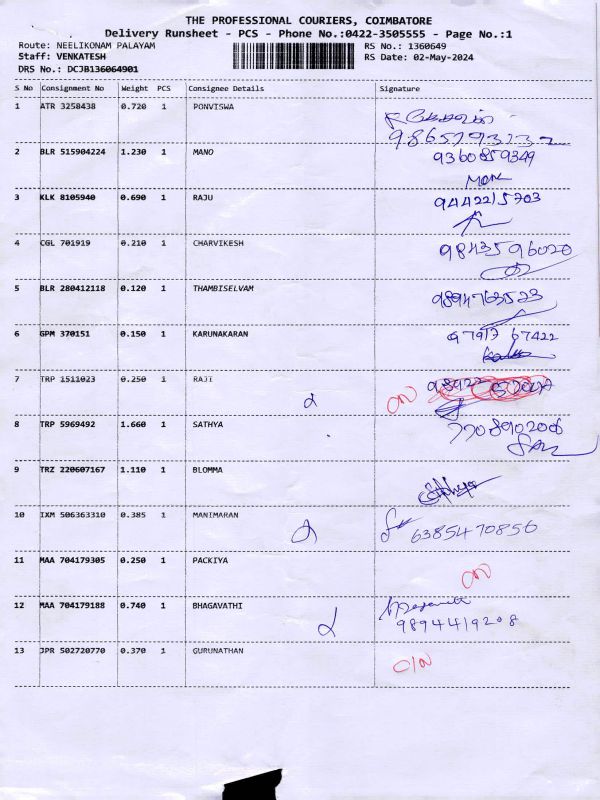 THE PROFESSIONAL COURIERS, COIMBATORE
Delivery Runsheet - PCS - Phone No.:0422-3505555 - Page No.:1
Route: NEELIKONAM PALAYAM RS No.: 1360649
Staff: VENKATESH RS Date: 02-May-2024
DRS No.: DCJB136064901
S No Consignment No Weight PCS Consignee Details Signature
1 ATR 3258438 0.720 1 PONVISWA
2 BLR 515904224 1.230 1 MANO 9360859349
3 KLK 8105940 0.690 1 RAJU 9442215703
4 CGL 701919 0.210 1 CHARVIKESH 9843596020
5 BLR 280412118 0.120 1 THAMBISELVAM 9894763523
6 GPM 370151 0.150 1 KARUNAKARAN 97917 67422
7 TRP 1511023 0.250 1 RAJI
8 TRP 5969492 1.660 1 SATHYA 7708902006
9 TRZ 220607167 1.110 1 BLOMMA
10 IXM 506363310 0.385 1 MANIMARAN 6385470856
11 MAA 704179305 0.250 1 PACKIYA
12 MAA 704179188 0.740 1 BHAGAVATHI
9894419208
13 JPR 502720770 0.370 1 GURUNATHAN